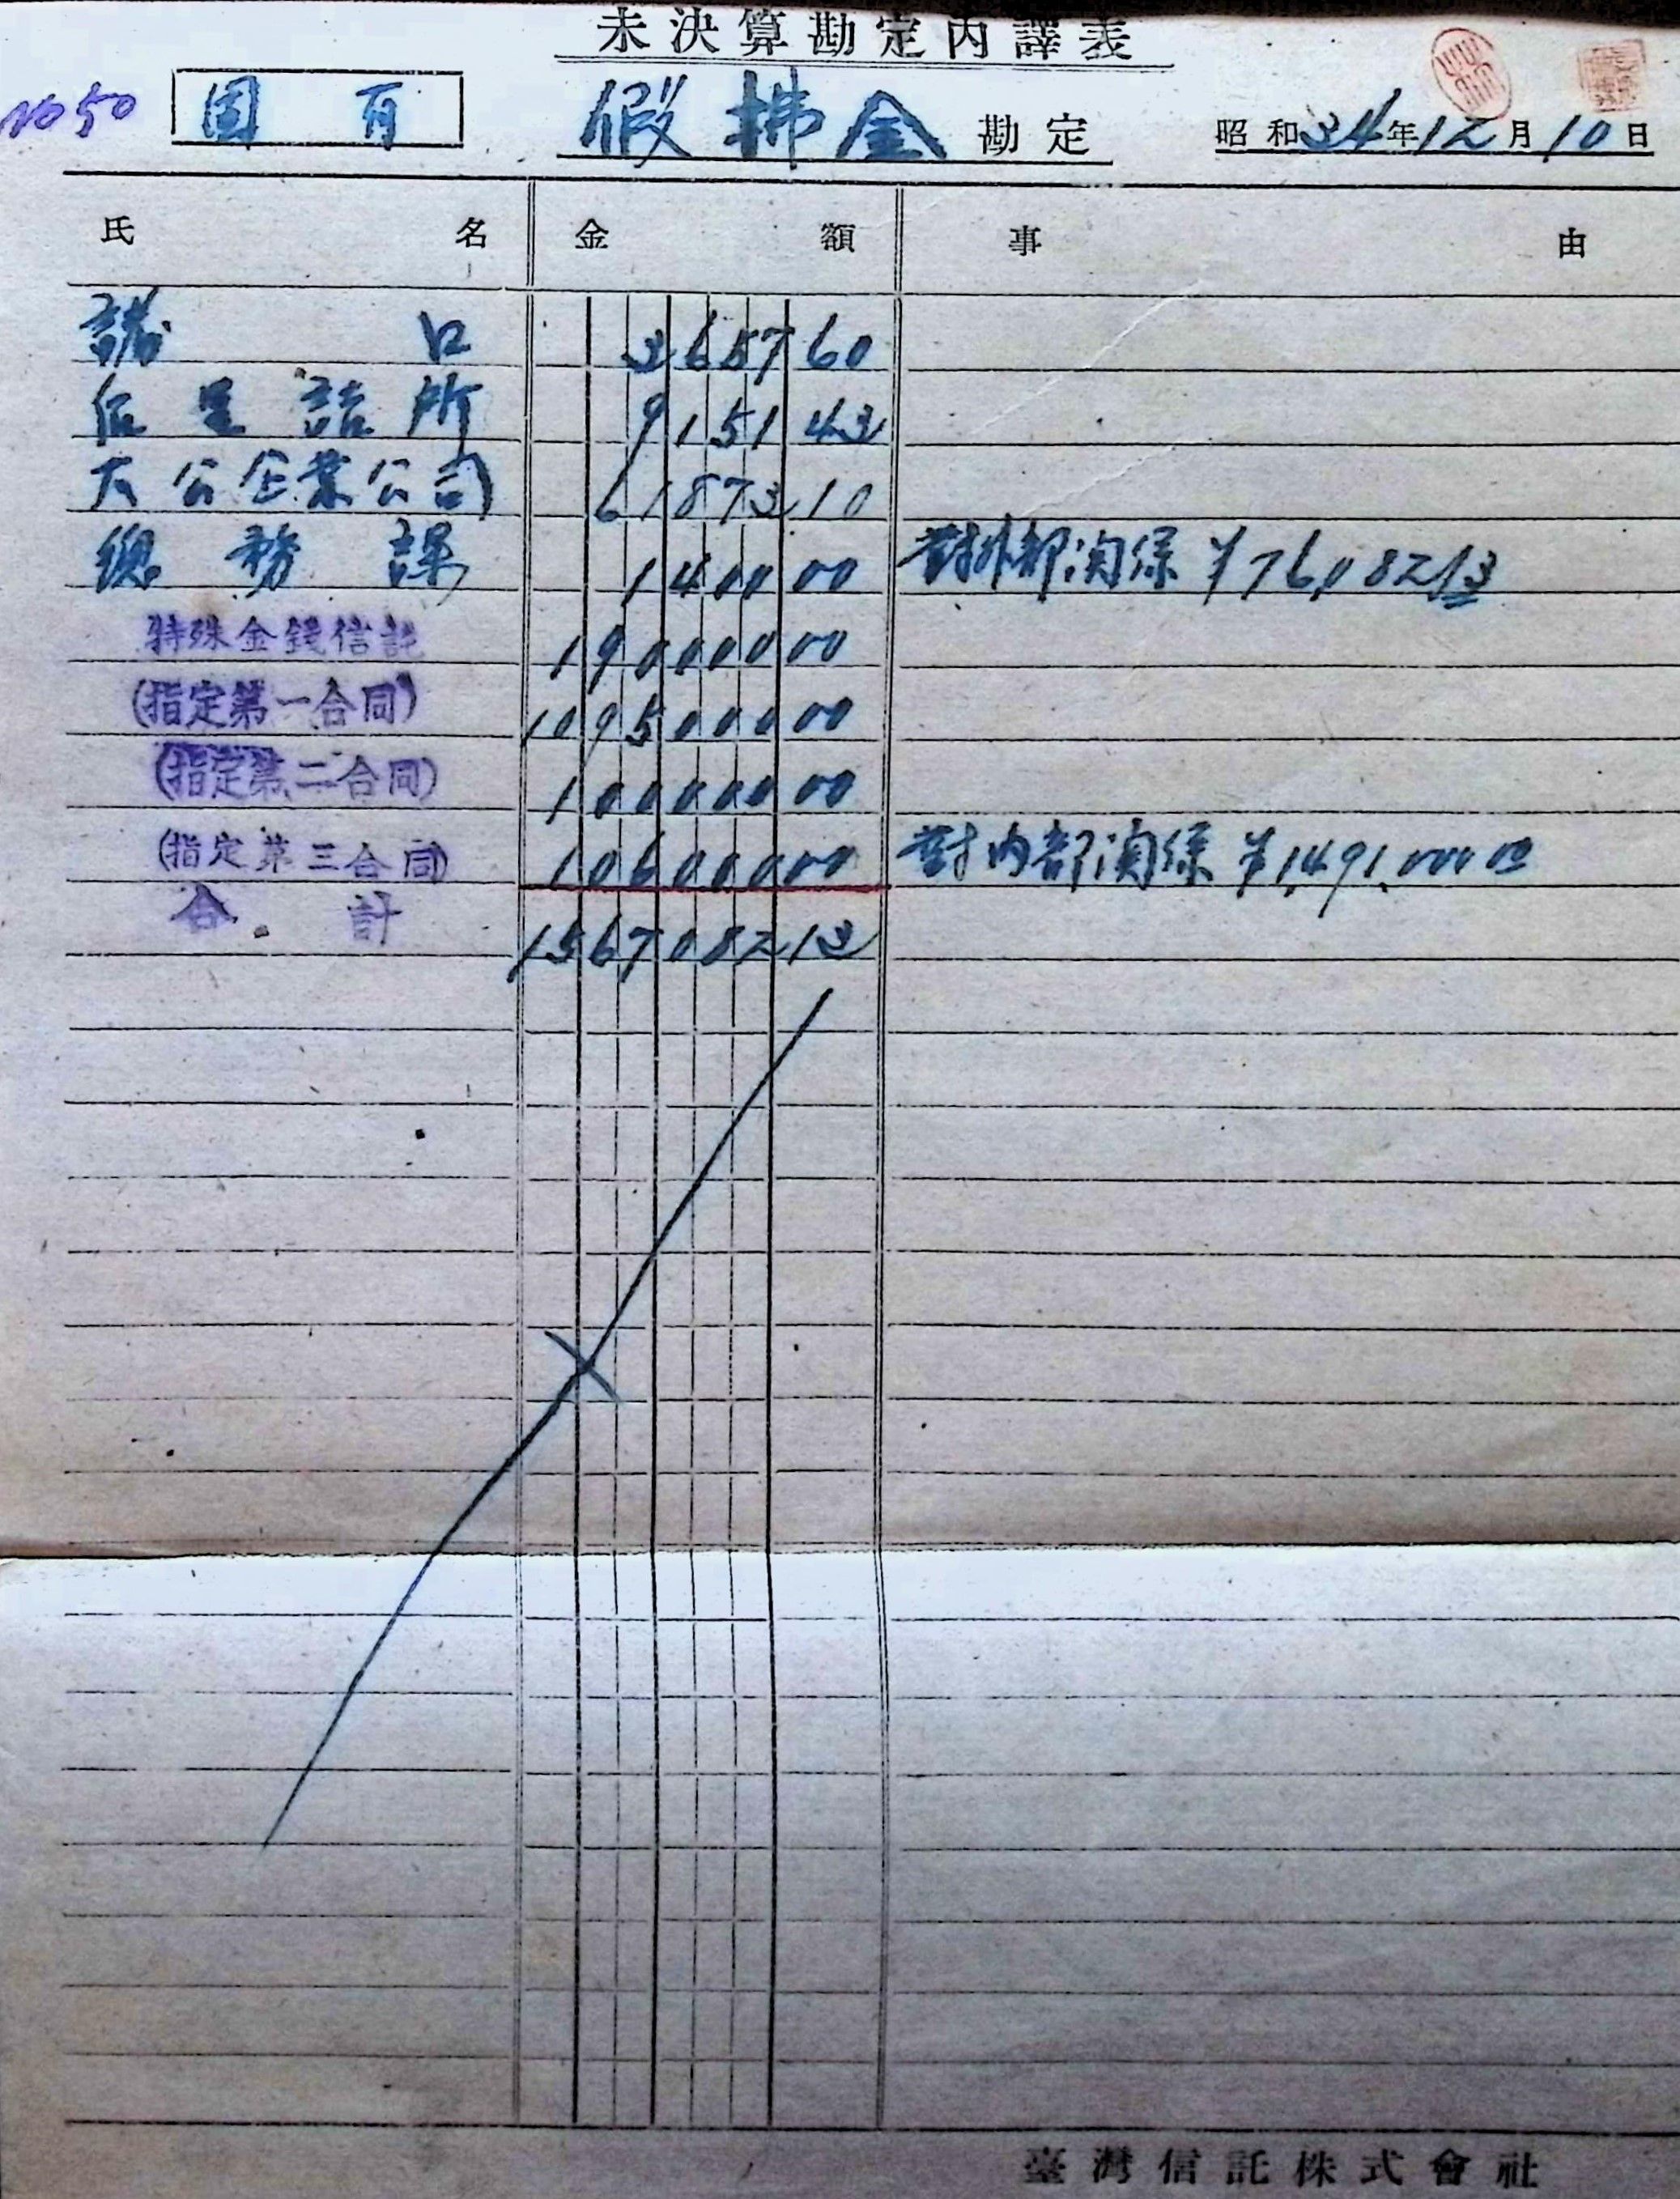 未決算勘定内譯表
No 50 固有 假拂金 勘定 昭和34年12月10日
氏名 金額 事由
諸口 3657 60
住里詰所 9151 43
大公企業公司 61873 10
總務課 1400 00 對外部関係 ¥76,082.13
特殊金錢信託 190000 00
(指定第一合同) 1095000 00
(指定第二合同) 100000 00
(指定第三合同) 106000 00 對内部関係 ¥1,491,000.00
合計 1567082 13
臺灣信託株式會社